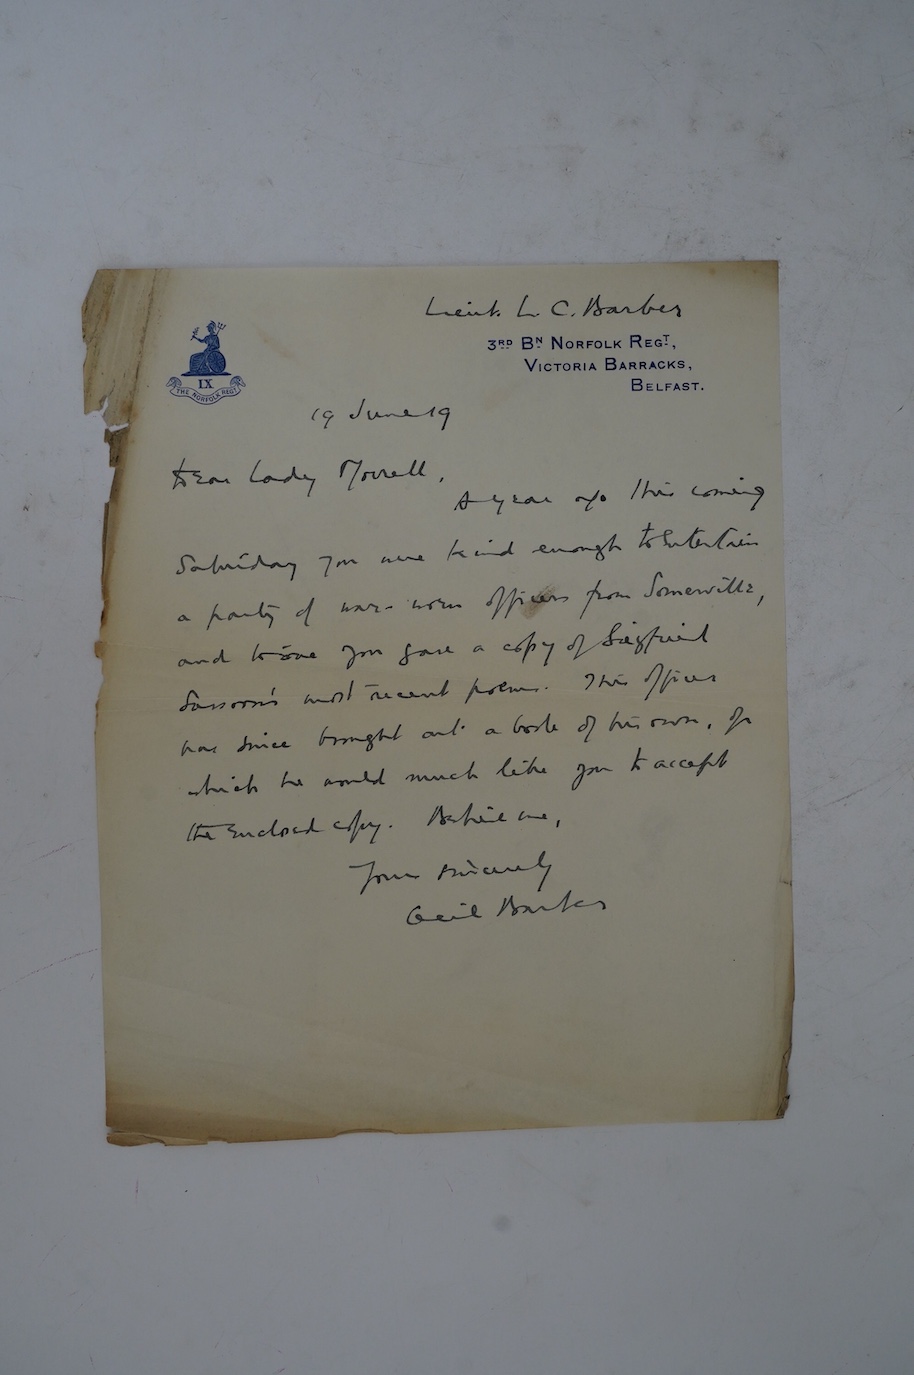 Lieut. L. C. Barber
3RD BN NORFOLK REGT,
VICTORIA BARRACKS,
BELFAST.
IX
THE NORFOLK REGT
19 June 19
Dear Lady Morrell,
A year ago this coming
Saturday you were kind enough to entertain
a party of war-worn officers from Somerville,
and to one you gave a copy of Siegfried
Sassoon's most recent poems. This officer
has since brought out a book of his own, of
which he would much like you to accept
the enclosed copy. Believe me,
Yours sincerely
Cecil Barber